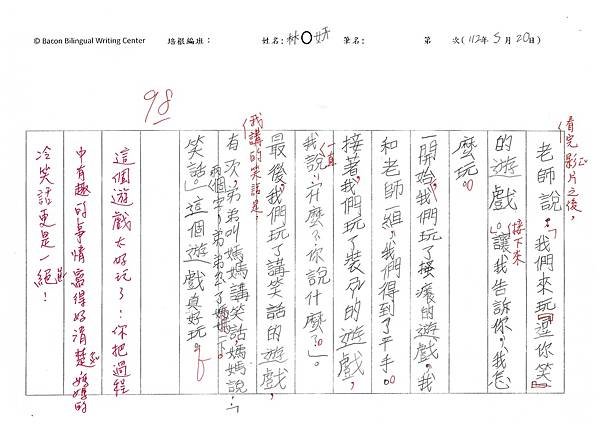 © Bacon Bilingual Writing Center 培根編班： 姓名：林○妤 筆名： 第 次(112年5月20日)
98
看完影片之後，
老師說：「我們來玩『逗你笑』
的遊戲。」接下來讓我告訴你，我怎
麼玩。
一開始，我們玩了搔癢的遊戲。我
和老師一組，我們得到了平手。
接著，我們玩了裝ㄕㄚˇ的遊戲，
我一直說：「什麼？你說什麼？」。
最後，我們玩了講笑話的遊戲，
我講的笑話是，
有一次，弟弟叫媽媽講笑話，媽媽說：「
兩個字，弟弟
笑話。」這個遊戲真好玩。
這個遊戲太好玩了！你把過程
中有趣的事情寫得好清楚，媽媽的
冷笑話更是一絕！